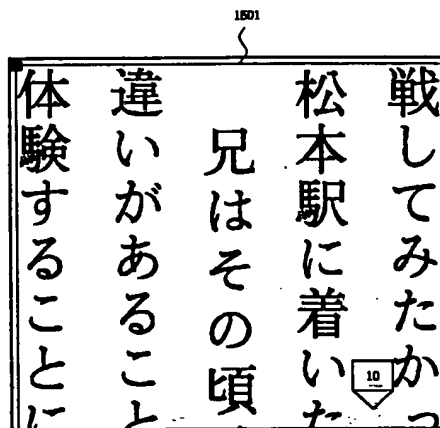 1501
戦してみたかっ
松本駅に着いた
兄はその頃
違いがあること
体験することに
10